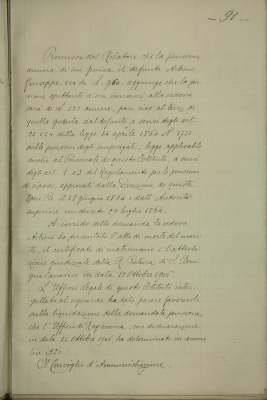 - 91 -
Premesso dal Relatore che la pensione
annua di cui fruiva il defunto
Giuseppe era di L. 960, aggiunge che la pen
sione spettante a ora alla vedova
sarà di L. 320 annue, pari cioè al terzo di
quella goduta dal defunto a sensi degli art.
23 e 24 della legge 14 aprile 1864 N° 1731
sulle pensioni degli impiegati, legge applicabile
anche al Personale di questo Istituto, a sensi
degli art. 1 e 3 del Regolamento per le pensioni
di riposo, approvato dalla Direzione di questa
Opera Pia il 28 giugno 1864 e dall'Autorità
superiore con decreto 29 luglio 1864.
A corredo della domanda la vedova
ha presentato l'atto di morte del mari
to, il certificato di matrimonio e l'attesta
zione giudiziale della R. Pretura di
Canavese in data 18 Ottobre 1906.
L'Ufficio legale di questo Istituto inter
pellato al riguardo ha dato parere favorevole
della liquidazione della domandata pensione,
che l'Ufficio di Ragioneria, con dichiarazione
in data 30 Ottobre 1906, ha determinato in annue
lire 320.
Il Consiglio d'Amministrazione,